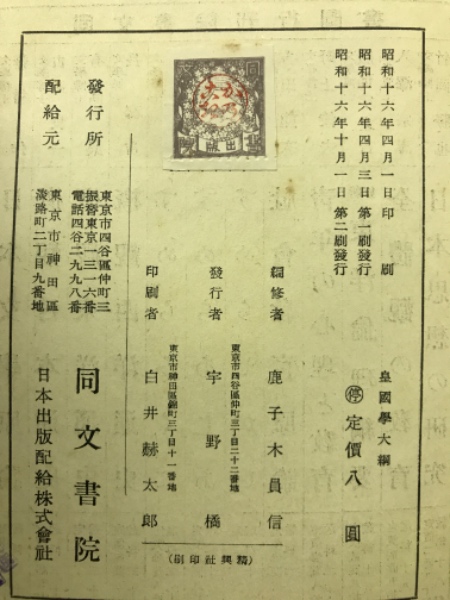 昭和十六年四月一日印　刷
昭和十六年四月三日第一刷發行
昭和十六年十月一日第二刷發行
皇國學大綱
停定價八圓
同文
書院
出版
編修者　鹿子木員信
東京市四谷區仲町三丁目二十二番地
發行者　宇野橘
東京市神田區錦町三丁目十一番地
印刷者　白井赫太郎
(精興社印刷)
發行所
東京市四谷區仲町三
振替東京一三一六番
電話四谷二九九八番
同文書院
配給元
東京市神田區
淡路町二丁目九番地
日本出版配給株式會社